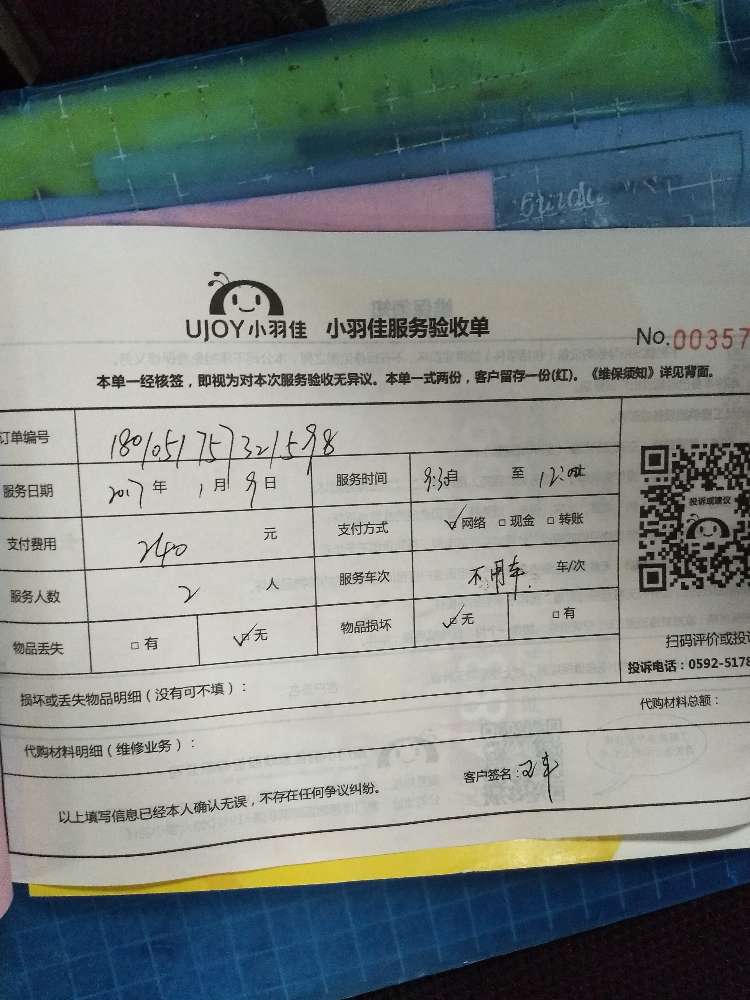 UJOY小羽佳 小羽佳服务验收单
No.00357
本单一经核签，即视为对本次服务验收无异议。本单一式两份，客户留存一份(红)。《维保须知》详见背面。
订单编号 1801051757321598
服务日期 2017年1月9日 服务时间 9:30自 至 12:00
支付费用 240 元 支付方式 ☑网络 □现金 □转账
服务人数 2 人 服务车次 不用车 车/次
物品丢失 □有 ☑无 物品损坏 ☑无 □有
投诉或建议
扫码评价或投
投诉电话：0592-5178
损坏或丢失物品明细（没有可不填）：
代购材料总额：
代购材料明细（维修业务）：
以上填写信息已经本人确认无误，不存在任何争议纠纷。
客户签名：